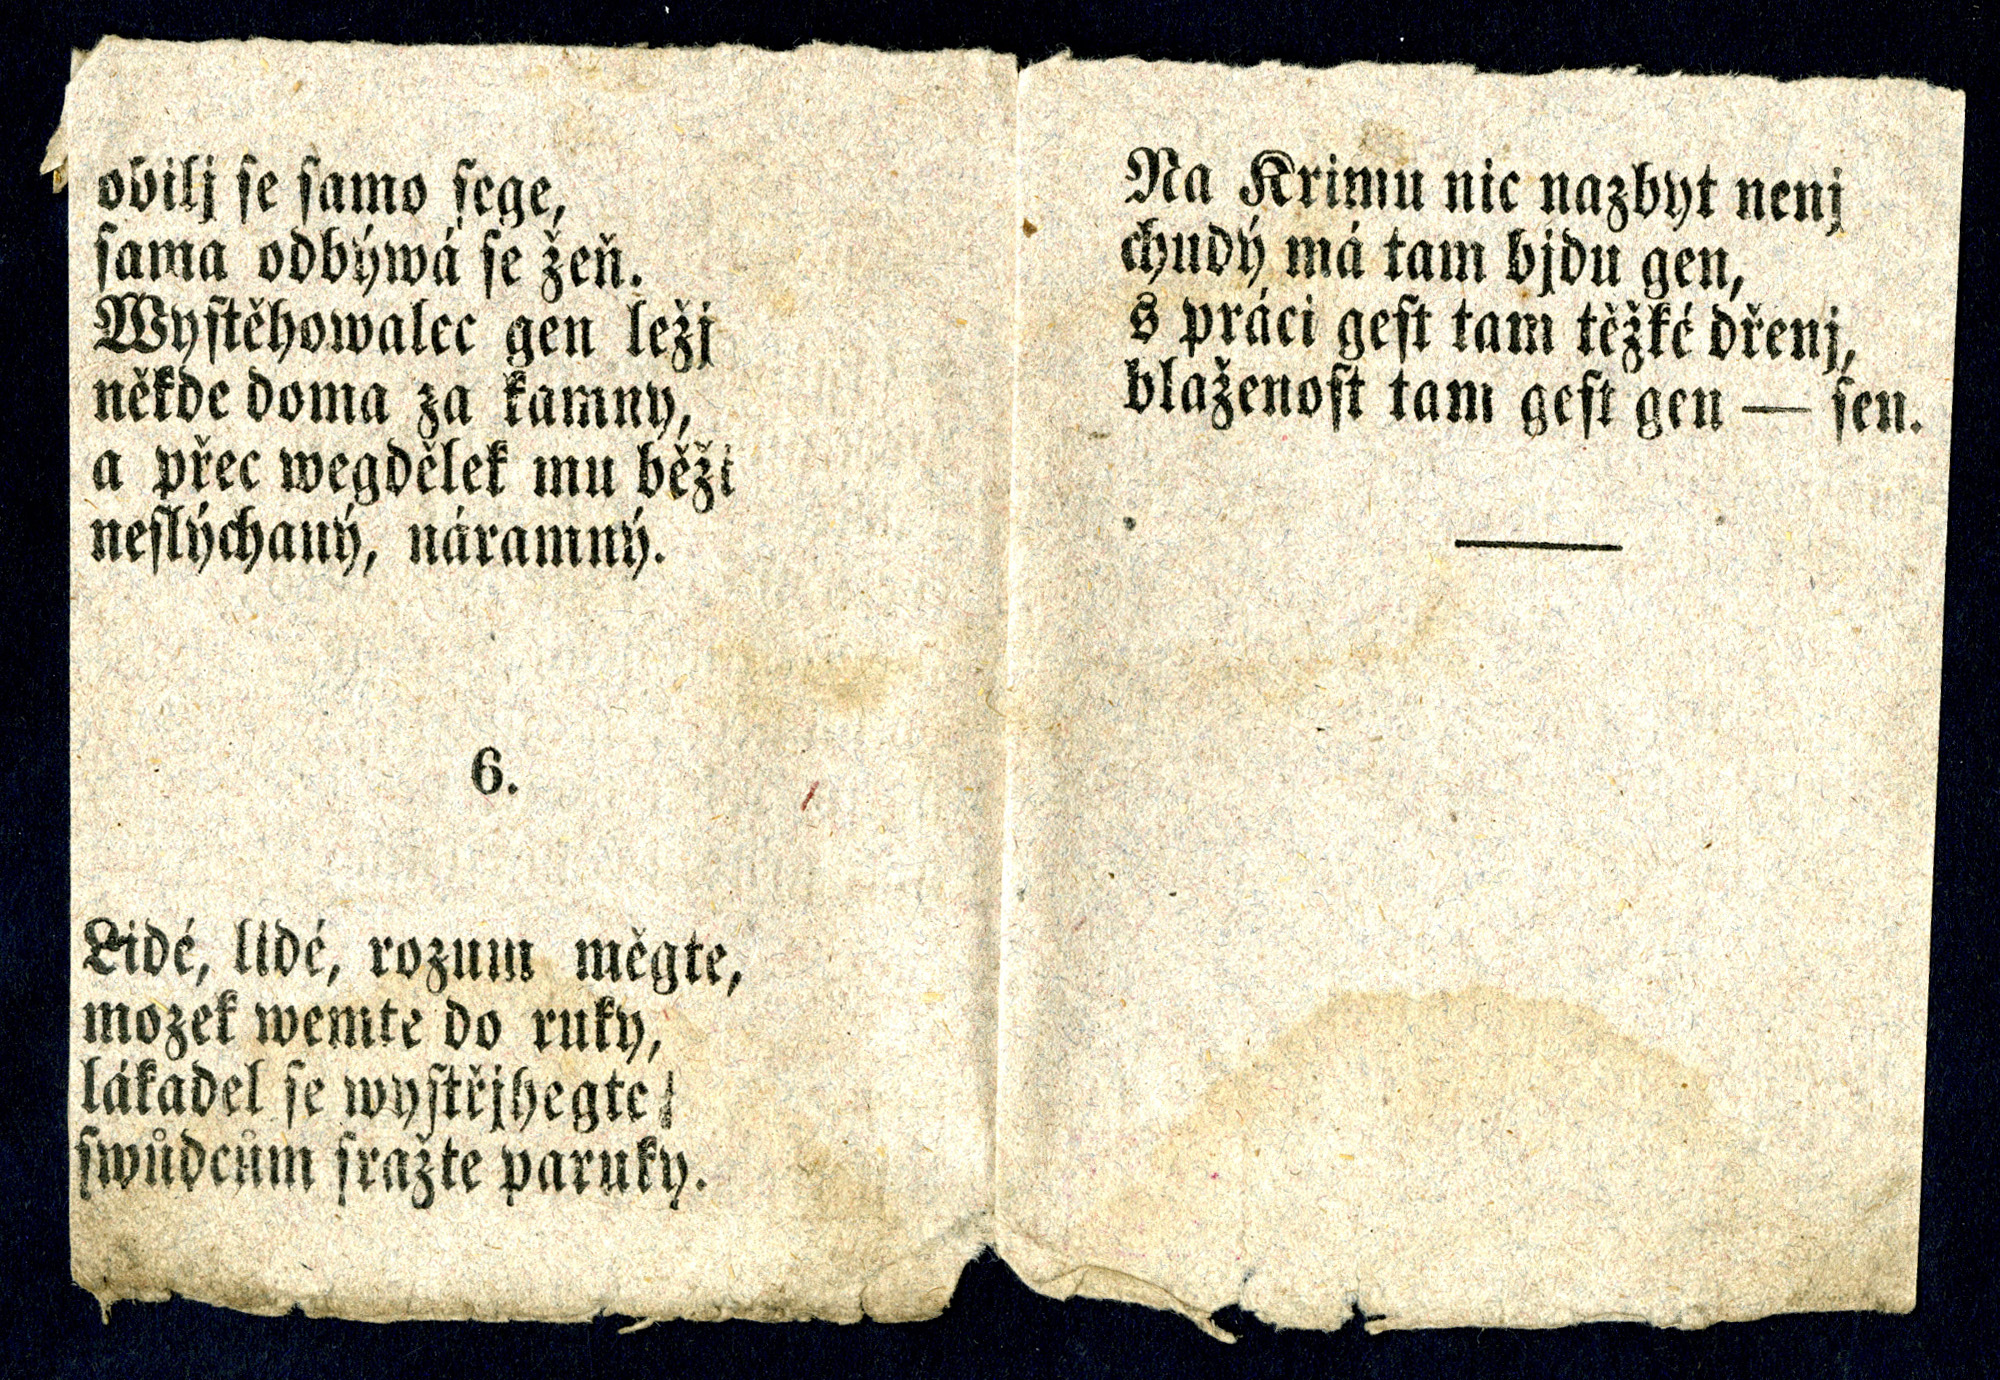 obilj se samo sege,
sama odbýwá se žeň.
Wystěhowalec gen ležj
někde doma za kamny,
a přec wegdělek mu běži
neslýchaný, náramný.
6.
Lidé, lidé, rozum mĕgte,
mozek wemte do ruky,
lákadel se wystřjhegte,
swůdcům sražte paruky.
Na Krimu nic nazbyt nenj
chudý má tam bjdu gen,
s práci gest tam těžké dřenj,
blaženost tam gest gen — sen.